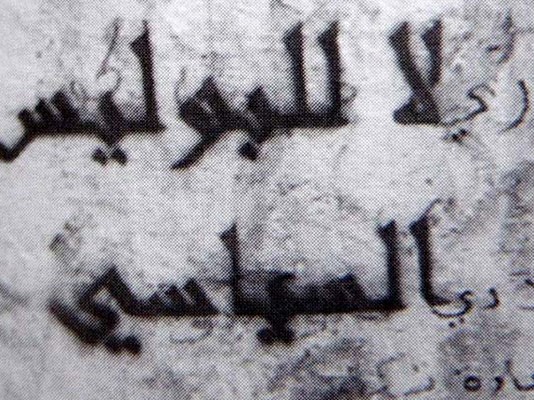 لا للبوليس
السياسي